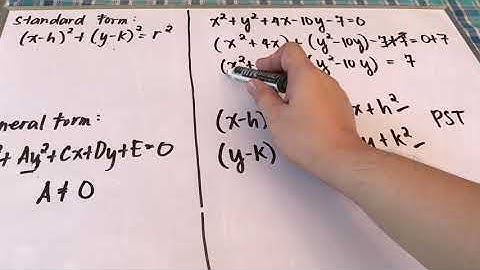 Standard form:
(x-h)² + (y-k)² = r²
neral form:
Ay² + Cx + Dy + E = 0
A ≠ 0
x² + y² + 4x - 10y - 7 = 0
(x² + 4x) + (y² - 10y) - 7 + 7 = 0 + 7
(x² + (y² - 10y) = 7
(x-h) x + h²
(y-k) y + k²
PST